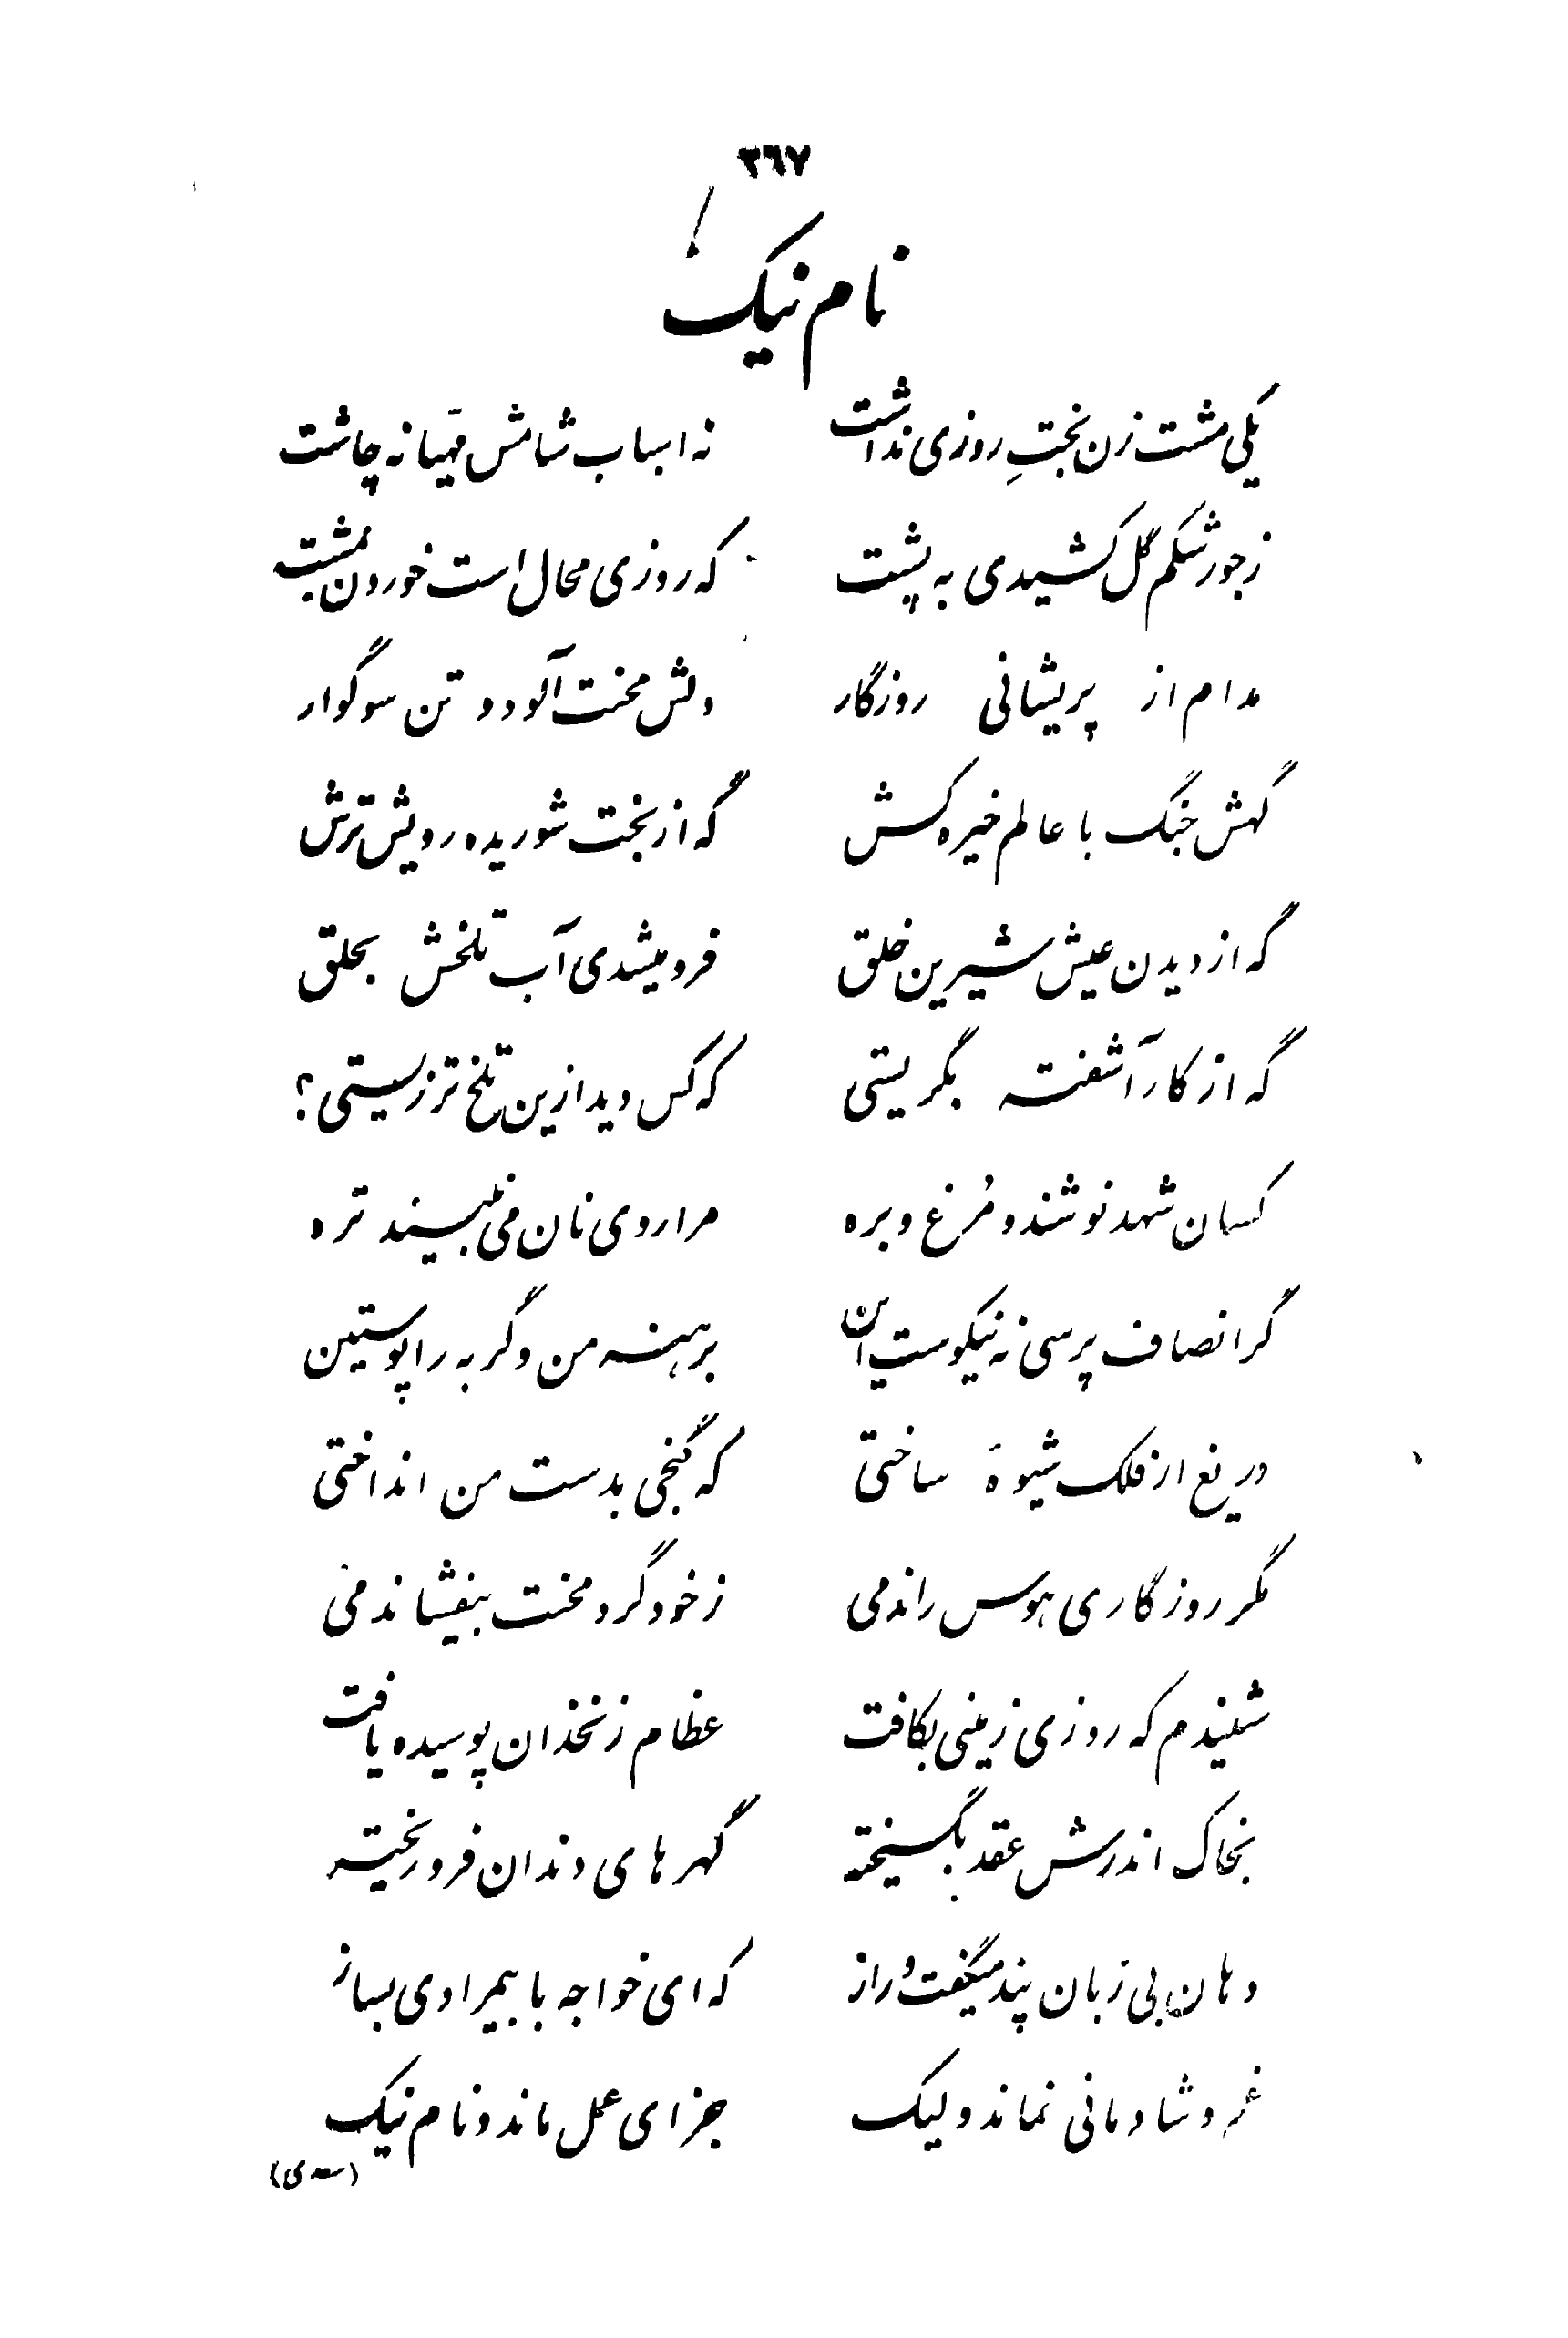 ۳۶۷
نام نیک
یکی مشت زن بختِ روزی نداشت نه اسباب شامش مهّیا نه چاشت
ز جور شکم گل کشیدی به پشت که روزی محال است خوردن بمشت
مدام از پریشانی روزگار دلش محنت آلود و تن سوگوار
گهش جنگ با عالم خیره کش گه از بخت شوریده رویش ترش
گه از دیدن عیش شیرین خلق فرو میشدی آب تلخش بحلق
گه از کار آشفته بگریستی که کس دید ازین تلخ تر زیستی؟
کسان شهد نوشند و مُرغ و بره مرا روی نان می نبیند تره
گر انصاف پرسی نه نیکوست این برهنه من و گربه را پوستین
دریغ ار فلک شیوهٔ ساختی که گنجی بدست من انداختی
مگر روزگاری هوس راندمی ز خود گرد محنت بیفشاندمی
شنیدم که روزی زمینی بکافت عظام زنخدان پوسیده یافت
بخاک اندرش عقد بگسیخته گهرهای دندان فرو ریخته
دهان بی زبان پند میگفت و راز که ای خواجه با بیمرادی بساز
غم و شادمانی نماند ولیک جزای عمل ماند و نام نیک
(سعدی)